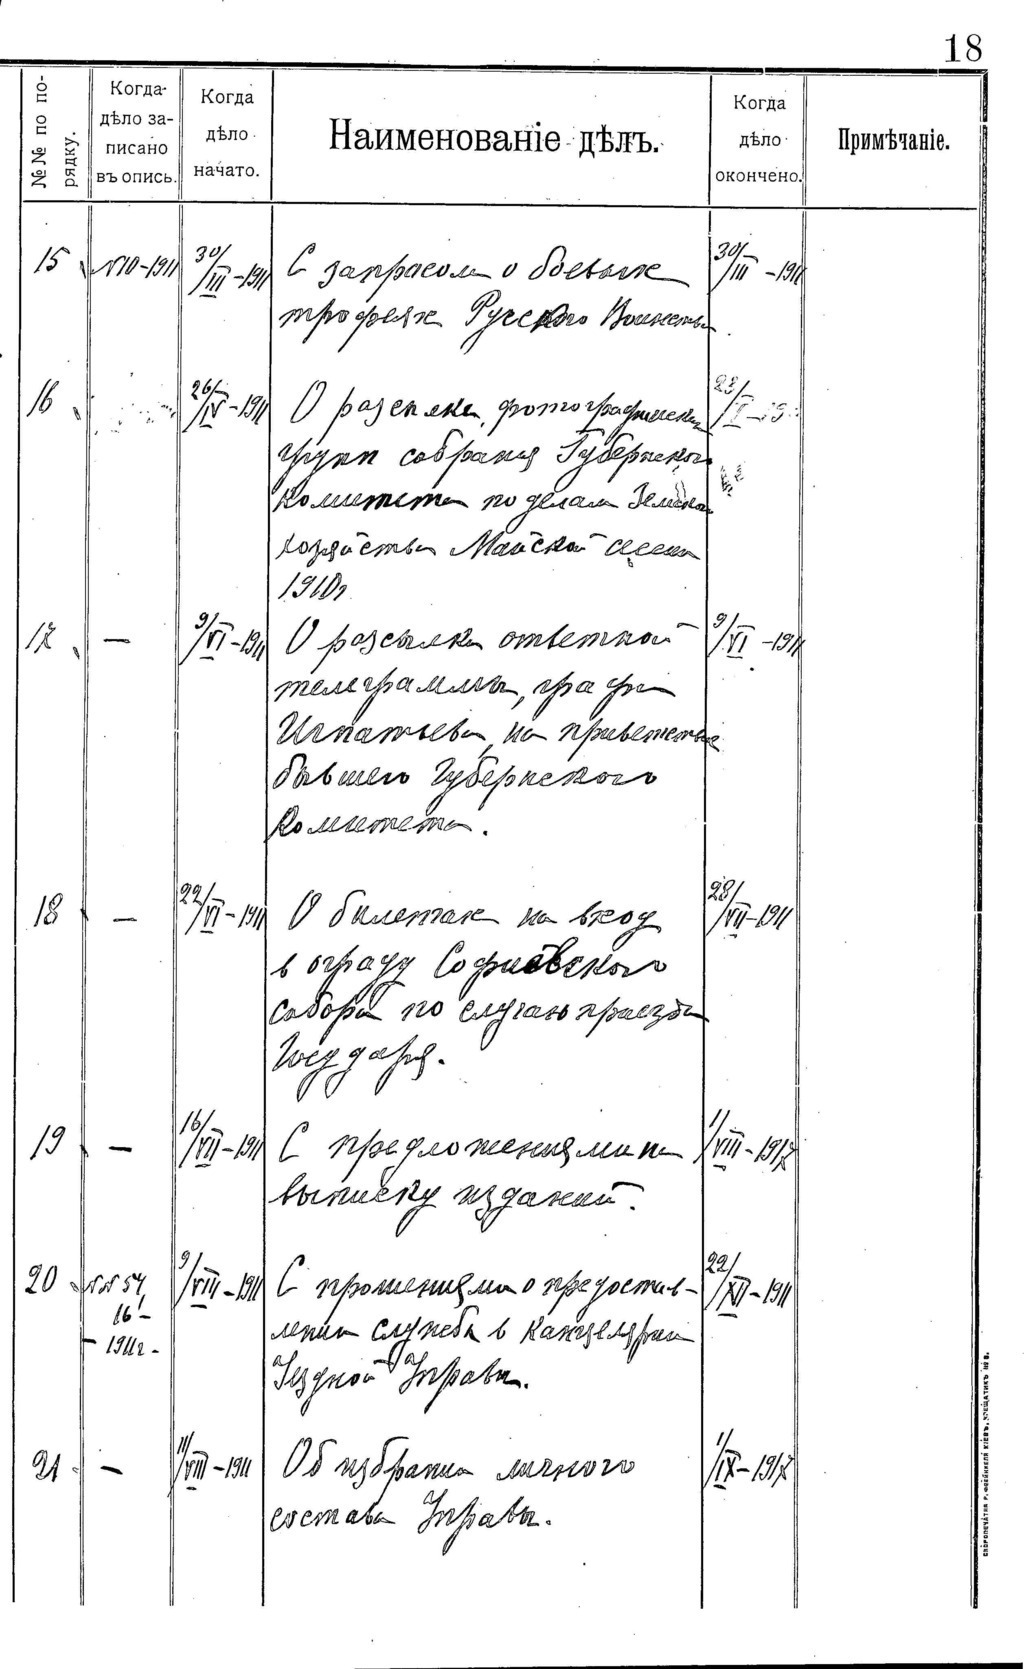 18
№№ по по-
рядку.
Когда
дѣло за-
писано
въ опись.
Когда
дѣло
начато.
Наименованіе дѣлъ.
Когда
дѣло
окончено.
Примѣчаніе.
15 №10-1911 30/III-1911 С запросом о боевых 30/III-1911
трофеях Русского Воинства
16 26/IV-1911 О разсылке фотографических
групп собрания Губернского
Комитета по делам Земского
хозяйства Майской сессии
1910г
17 — 9/VI-1911 О разсылке ответной 9/VI-1911
телеграммы, графа
Игнатьева, на приветствие
бывшего Губернского
Комитета.
18 — 22/VI-1911 О билетах на вход 28/VII-1911
в ограду Софиевского
собора по случаю приезда
Государя.
19 — 16/VII-1911 С предложениями на 1/VIII-1917
выписку изданий.
20 №№ 54, 9/VIII-1911 С прошениями о предостав- 22/XII-1911
16-
-1911г- лении службы в канцелярии
Уездной Управы.
21 — 11/VIII-1911 Об избрании личного 1/IX-1917
состава Управы.
СКОРОПЕЧАТНЯ КІЕВЪ, КРЕЩАТИКЪ